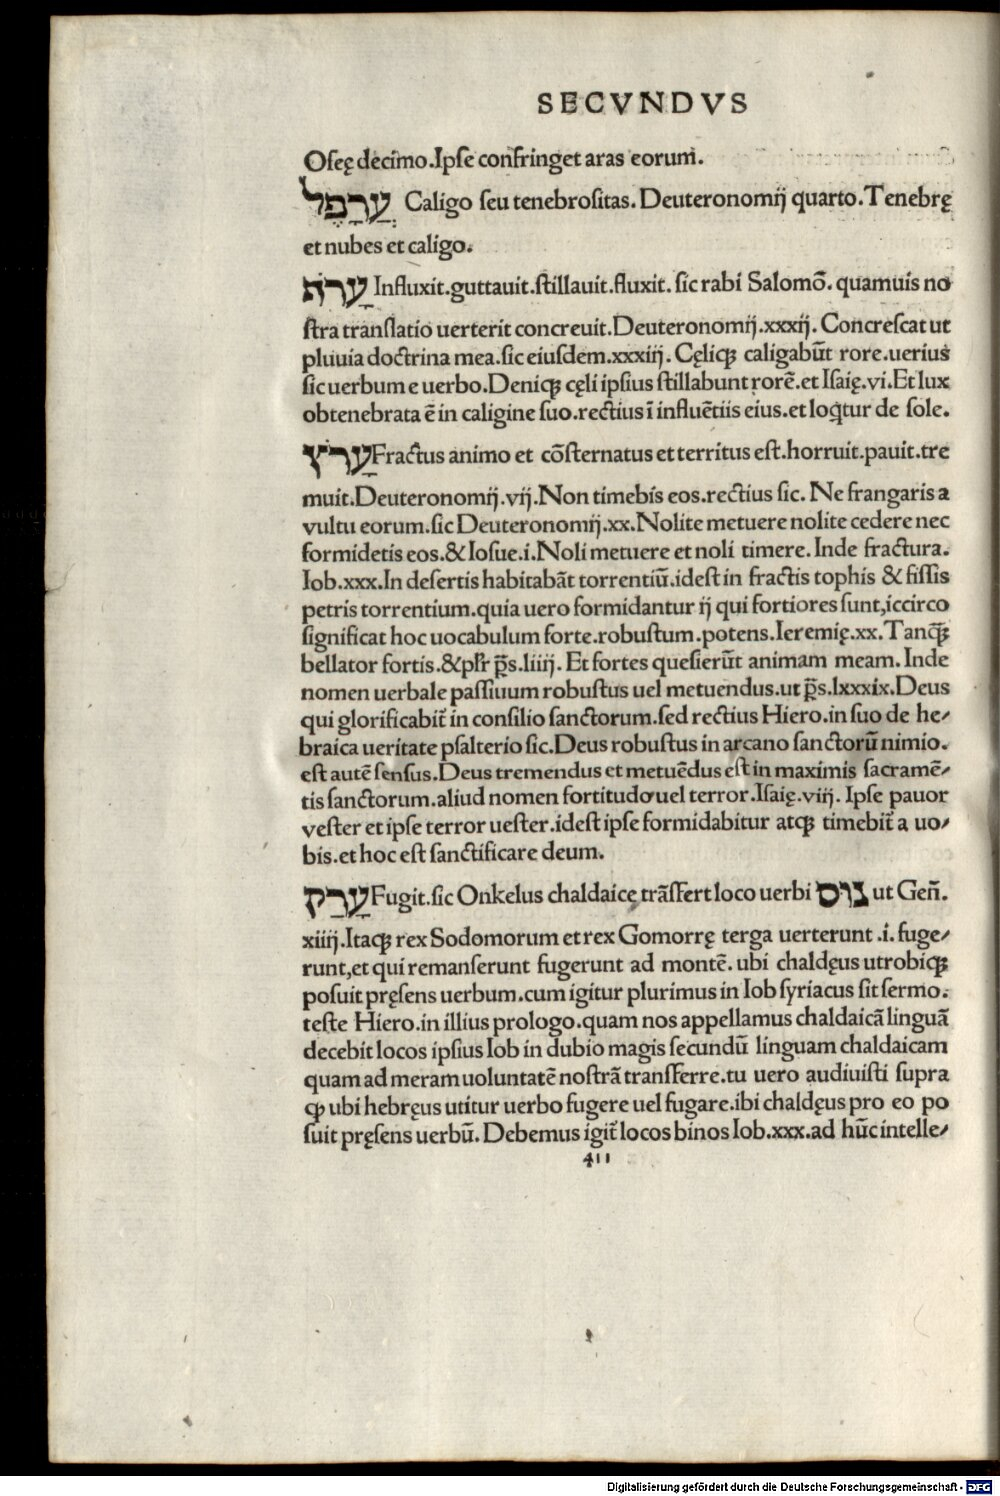 SECVNDVS
Oseę decimo.Ipse confringet aras eorum.
עֲרָפֶל Caligo seu tenebrositas. Deuteronomij quarto. Tenebrę
et nubes et caligo.
עָרֹף Influxit.guttauit.stillauit.fluxit. sic rabi Salomõ. quamuis no
stra translatio uerterit concreuit.Deuteronomij.xxxij. Concrescat ut
pluuia doctrina mea.sic eiusdem.xxxiij. Cęliqꝫ caligabũt rore.uerius
sic uerbum e uerbo.Deniqꝫ cęli ipsius stillabunt rorẽ.et Isaię.vi.Et lux
obtenebrata ẽ in caligine suo.rectius ĩ influẽtiis eius.et loq̃tur de sole.
עָרֹץ Fractus animo et cõsternatus et territus est.horruit.pauit.tre
muit.Deuteronomij.vij.Non timebis eos.rectius sic. Ne frangaris a
vultu eorum.sic Deuteronomij.xx.Nolite metuere nolite cedere nec
formidetis eos.&Iosue.i.Noli metuere et noli timere. Inde fractura.
Iob.xxx.In desertis habitabãt torrentiũ.idest in fractis tophis & fissis
petris torrentium.quia uero formidantur ij qui fortiores sunt,iccirco
significat hoc uocabulum forte.robustum.potens.Ieremię.xx.Tanq̃ꝫ
bellator fortis.&plr̃ p̃s.liiij. Et fortes quesierũt animam meam. Inde
nomen uerbale passiuum robustus uel metuendus.ut p̃s.lxxxix.Deus
qui glorificabit̃ in consilio sanctorum.sed rectius Hiero.in suo de he/
braica ueritate psalterio sic.Deus robustus in arcano sanctorũ nimio.
est autẽ sensus.Deus tremendus et metuẽdus est in maximis sacramẽ/
tis sanctorum.aliud nomen fortitudo uel terror.Isaię.viij. Ipse pauor
vester et ipse terror uester.idest ipse formidabitur atqꝫ timebit̃ a uo/
bis.et hoc est sanctificare deum.
עָרַק Fugit.sic Onkelus chaldaice trãsfert loco uerbi נוּס ut Geñ.
xiiij.Itaqꝫ rex Sodomorum et rex Gomorrę terga uerterunt .i. fuge/
runt,et qui remanserunt fugerunt ad montẽ. ubi chaldęus utrobiqꝫ
posuit pręsens uerbum.cum igitur plurimus in Iob syriacus sit sermo.
teste Hiero.in illius prologo.quam nos appellamus chaldaicã linguã
decebit locos ipsius Iob in dubio magis secundũ linguam chaldaicam
quam ad meram uoluntatẽ nostrã transferre.tu uero audiuisti supra
qꝫ ubi hebręus utitur uerbo fugere uel fugare.ibi chaldęus pro eo po
suit pręsens uerbũ. Debemus igit̃ locos binos Iob.xxx.ad hũc intelle/
411
Digitalisierung gefördert durch die Deutsche Forschungsgemeinschaft - DFG